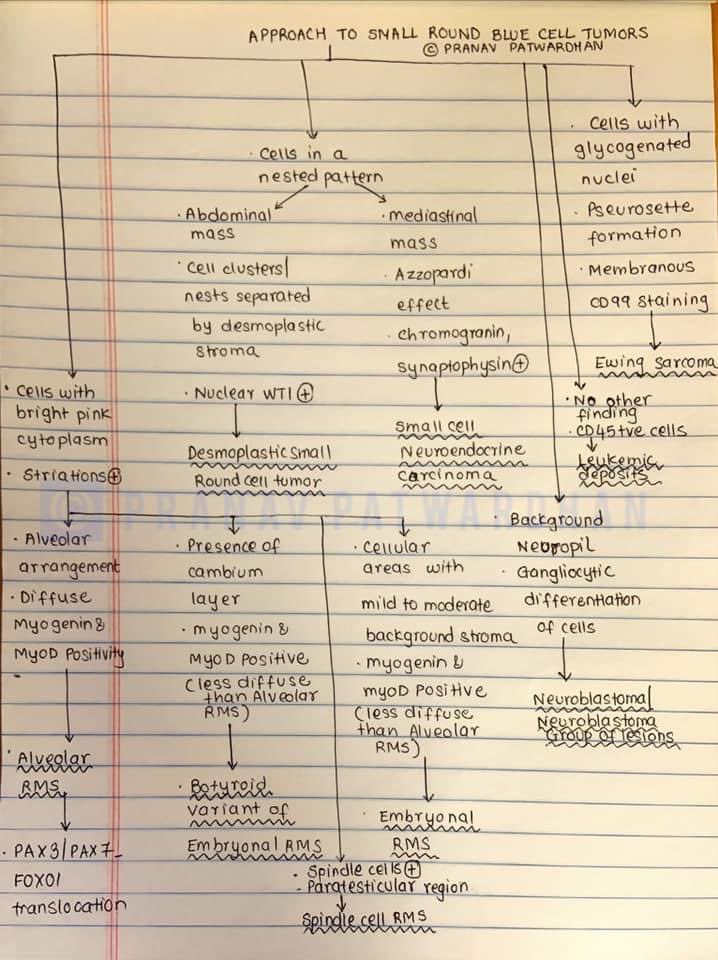 APPROACH TO SMALL ROUND BLUE CELL TUMORS
© PRANAV PATWARDHAN
· Cells in a
nested pattern
· Abdominal
mass
· Cell clusters/
nests separated
by desmoplastic
stroma
· Nuclear WT1 +
Desmoplastic Small
Round cell tumor
· mediastinal
mass
· Azzopardi
effect
· chromogranin,
synaptophysin +
Small cell
Neuroendocrine
carcinoma
· Cells with
glycogenated
nuclei
· Pseurosette
formation
· Membranous
CD99 staining
Ewing sarcoma
· No other
finding
· CD45+ve cells
Leukemic
deposits
· Background
Neuropil
· Gangliocytic
differentiation
of cells
Neuroblastoma/
Neuroblastoma
Group of lesions
· Cells with
bright pink
cytoplasm
· Striations +
© PRANAV PATWARDHAN
· Alveolar
arrangement
· Diffuse
Myogenin &
MyoD Positivity
· Alveolar
RMS
· PAX3/PAX7-
FOXO1
translocation
· Presence of
cambium
layer
· myogenin &
MyoD Positive
(less diffuse
than Alveolar
RMS)
· Botyroid
variant of
Embryonal RMS
· Cellular
areas with
mild to moderate
background stroma
· myogenin &
myoD Positive
(less diffuse
than Alveolar
RMS)
· Embryonal
RMS
· Spindle cells +
· Paratesticular region
Spindle cell RMS